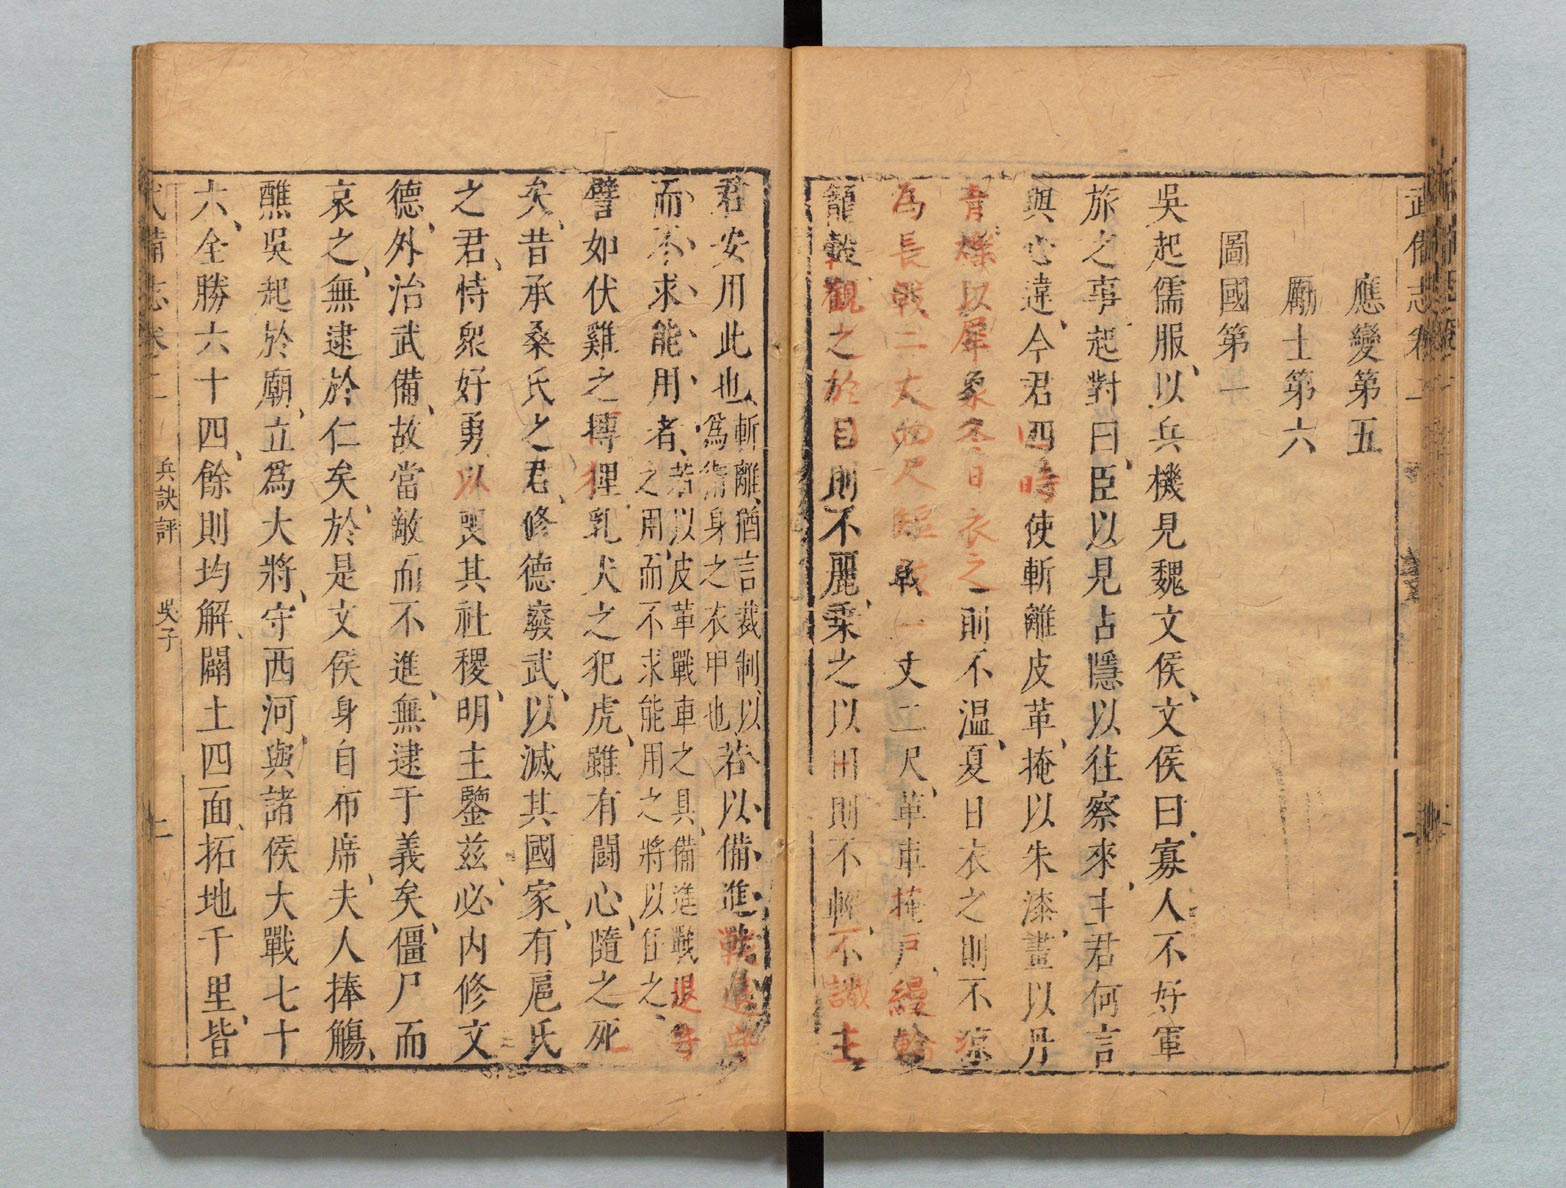 武備志卷二
應變第五
勵士第六
圖國第一
吳起儒服、以兵機見魏文侯、文侯曰、寡人不好軍
旅之事、起對曰、臣以見占隱以往察來、主君何言
與心違、今君四時使斬離皮革、掩以朱漆、畫以丹
青、爍以犀象、冬日衣之則不溫、夏日衣之則不凉
為長戟二丈四尺短戟一丈二尺、革車掩戶、縵輪
籠轂、觀之於目則不麗、乘之以田則不輕、不識主
君安用此也、斬離、猶言裁制、以為衛身之衣甲也若以備進戰退守
而不求能用者、若以皮革戰車之具、備進戰退守之用、而不求能用之將以任之、
譬如伏雞之搏狸、乳犬之犯虎、雖有鬪心、隨之死
矣、昔承桑氏之君、修德廢武、以滅其國家、有扈氏
之君、恃衆好勇、以喪其社稷、明主鑒兹、必內修文
德、外治武備、故當敵而不進、無逮于義矣、僵尸而
哀之、無逮於仁矣、於是文侯身自布席、夫人捧觴、
醮吳起於廟、立爲大將、守西河、與諸侯大戰七十
六、全勝六十四、餘則均解、闢土四面、拓地千里、皆
武備志卷二 兵訣評 吳子 二